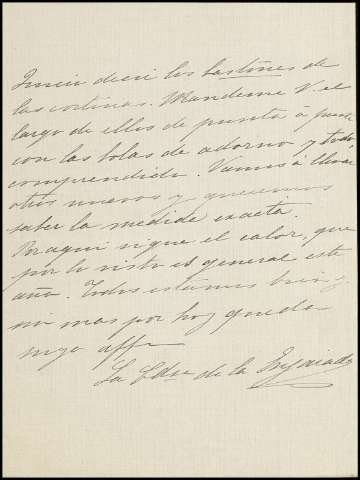 Quiero decir los bastones de
las cortinas. Mandeme V. el
largo de ellos de punta á punta
con las bolas de adorno y todo
comprendido. Vamos á llevar
otros nuevos y queremos
saber la medida exacta.
Por aqui sigue el calor, que
por lo visto es general este
año. Todos estamos bien y
sin mas por hoy queda
suya affa
La Cdsa de la